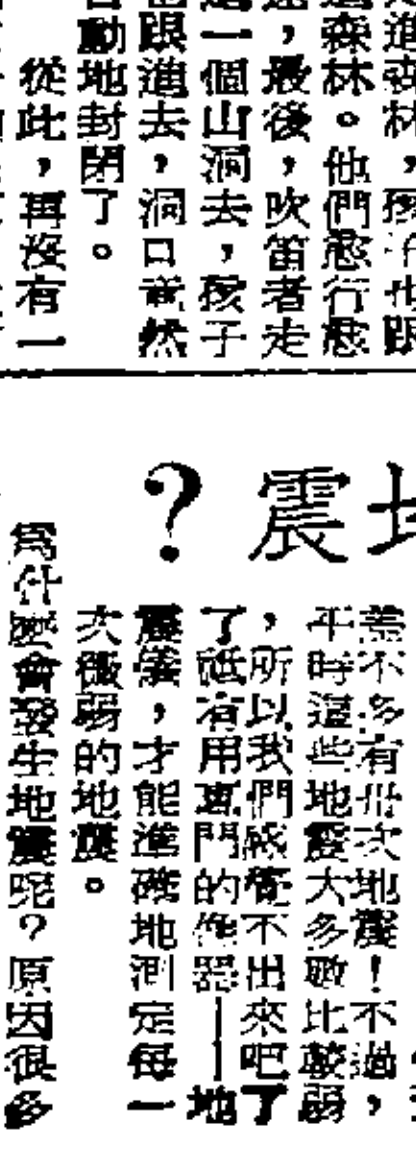 進森林，孩子也跟
森林。他們愈行愈
，最後，吹笛者走
一個山洞去，孩子
跟進去，洞口竟然
動地封閉了。
從此，再沒有一
震？
差不多有卅次地震！不過，
平時這些地震大多數比較弱
，所以我們感覺不出來吧了
了祗有用專門的儀器——地
震儀，才能準確地測定每一
次微弱的地震。
爲什麽會發生地震呢？原因很多